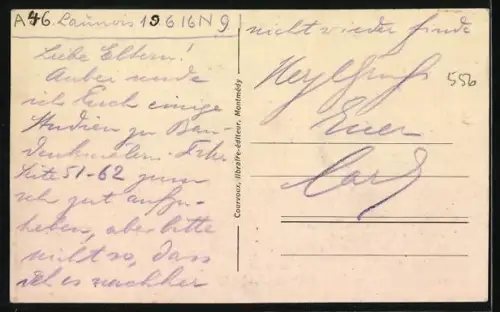 A46. Launois 19 6.16 N 9.
Liebe Eltern!
Anbei sende
ich Euch einige
Studien zu Bau-
denkmälern
Seite 51-62 zum
sehr gut aufzu-
heben, aber bitte
nicht so, dass
ich es nachher
nicht wieder finde
Herzl. Gruß
Euer
Carl
556
Courvoux, libraire-éditeur, Montmédy